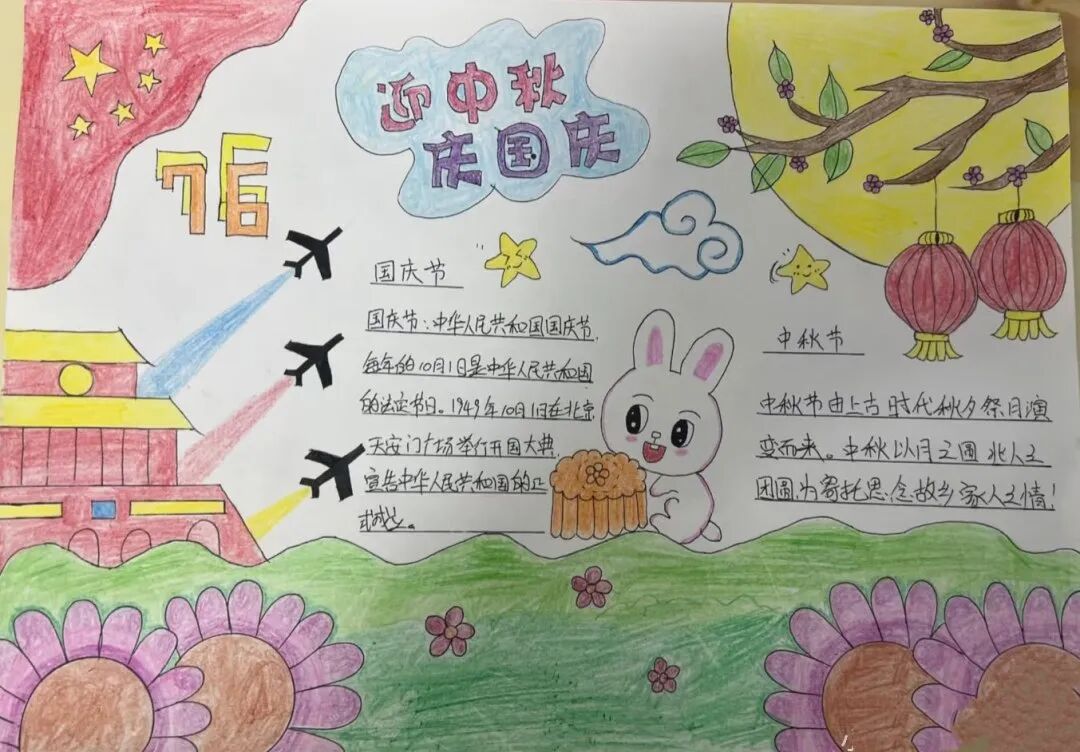 迎中秋
庆国庆
76
国庆节
国庆节：中华人民共和国国庆节，
每年的10月1日是中华人民共和国
的法定节日。1949年10月1日在北京
天安门广场举行开国大典，
宣告中华人民共和国的正
式成立。
中秋节
中秋节由上古时代秋夕祭月演
变而来。中秋以月之圆兆人之
团圆，为寄托思念故乡家人之情！